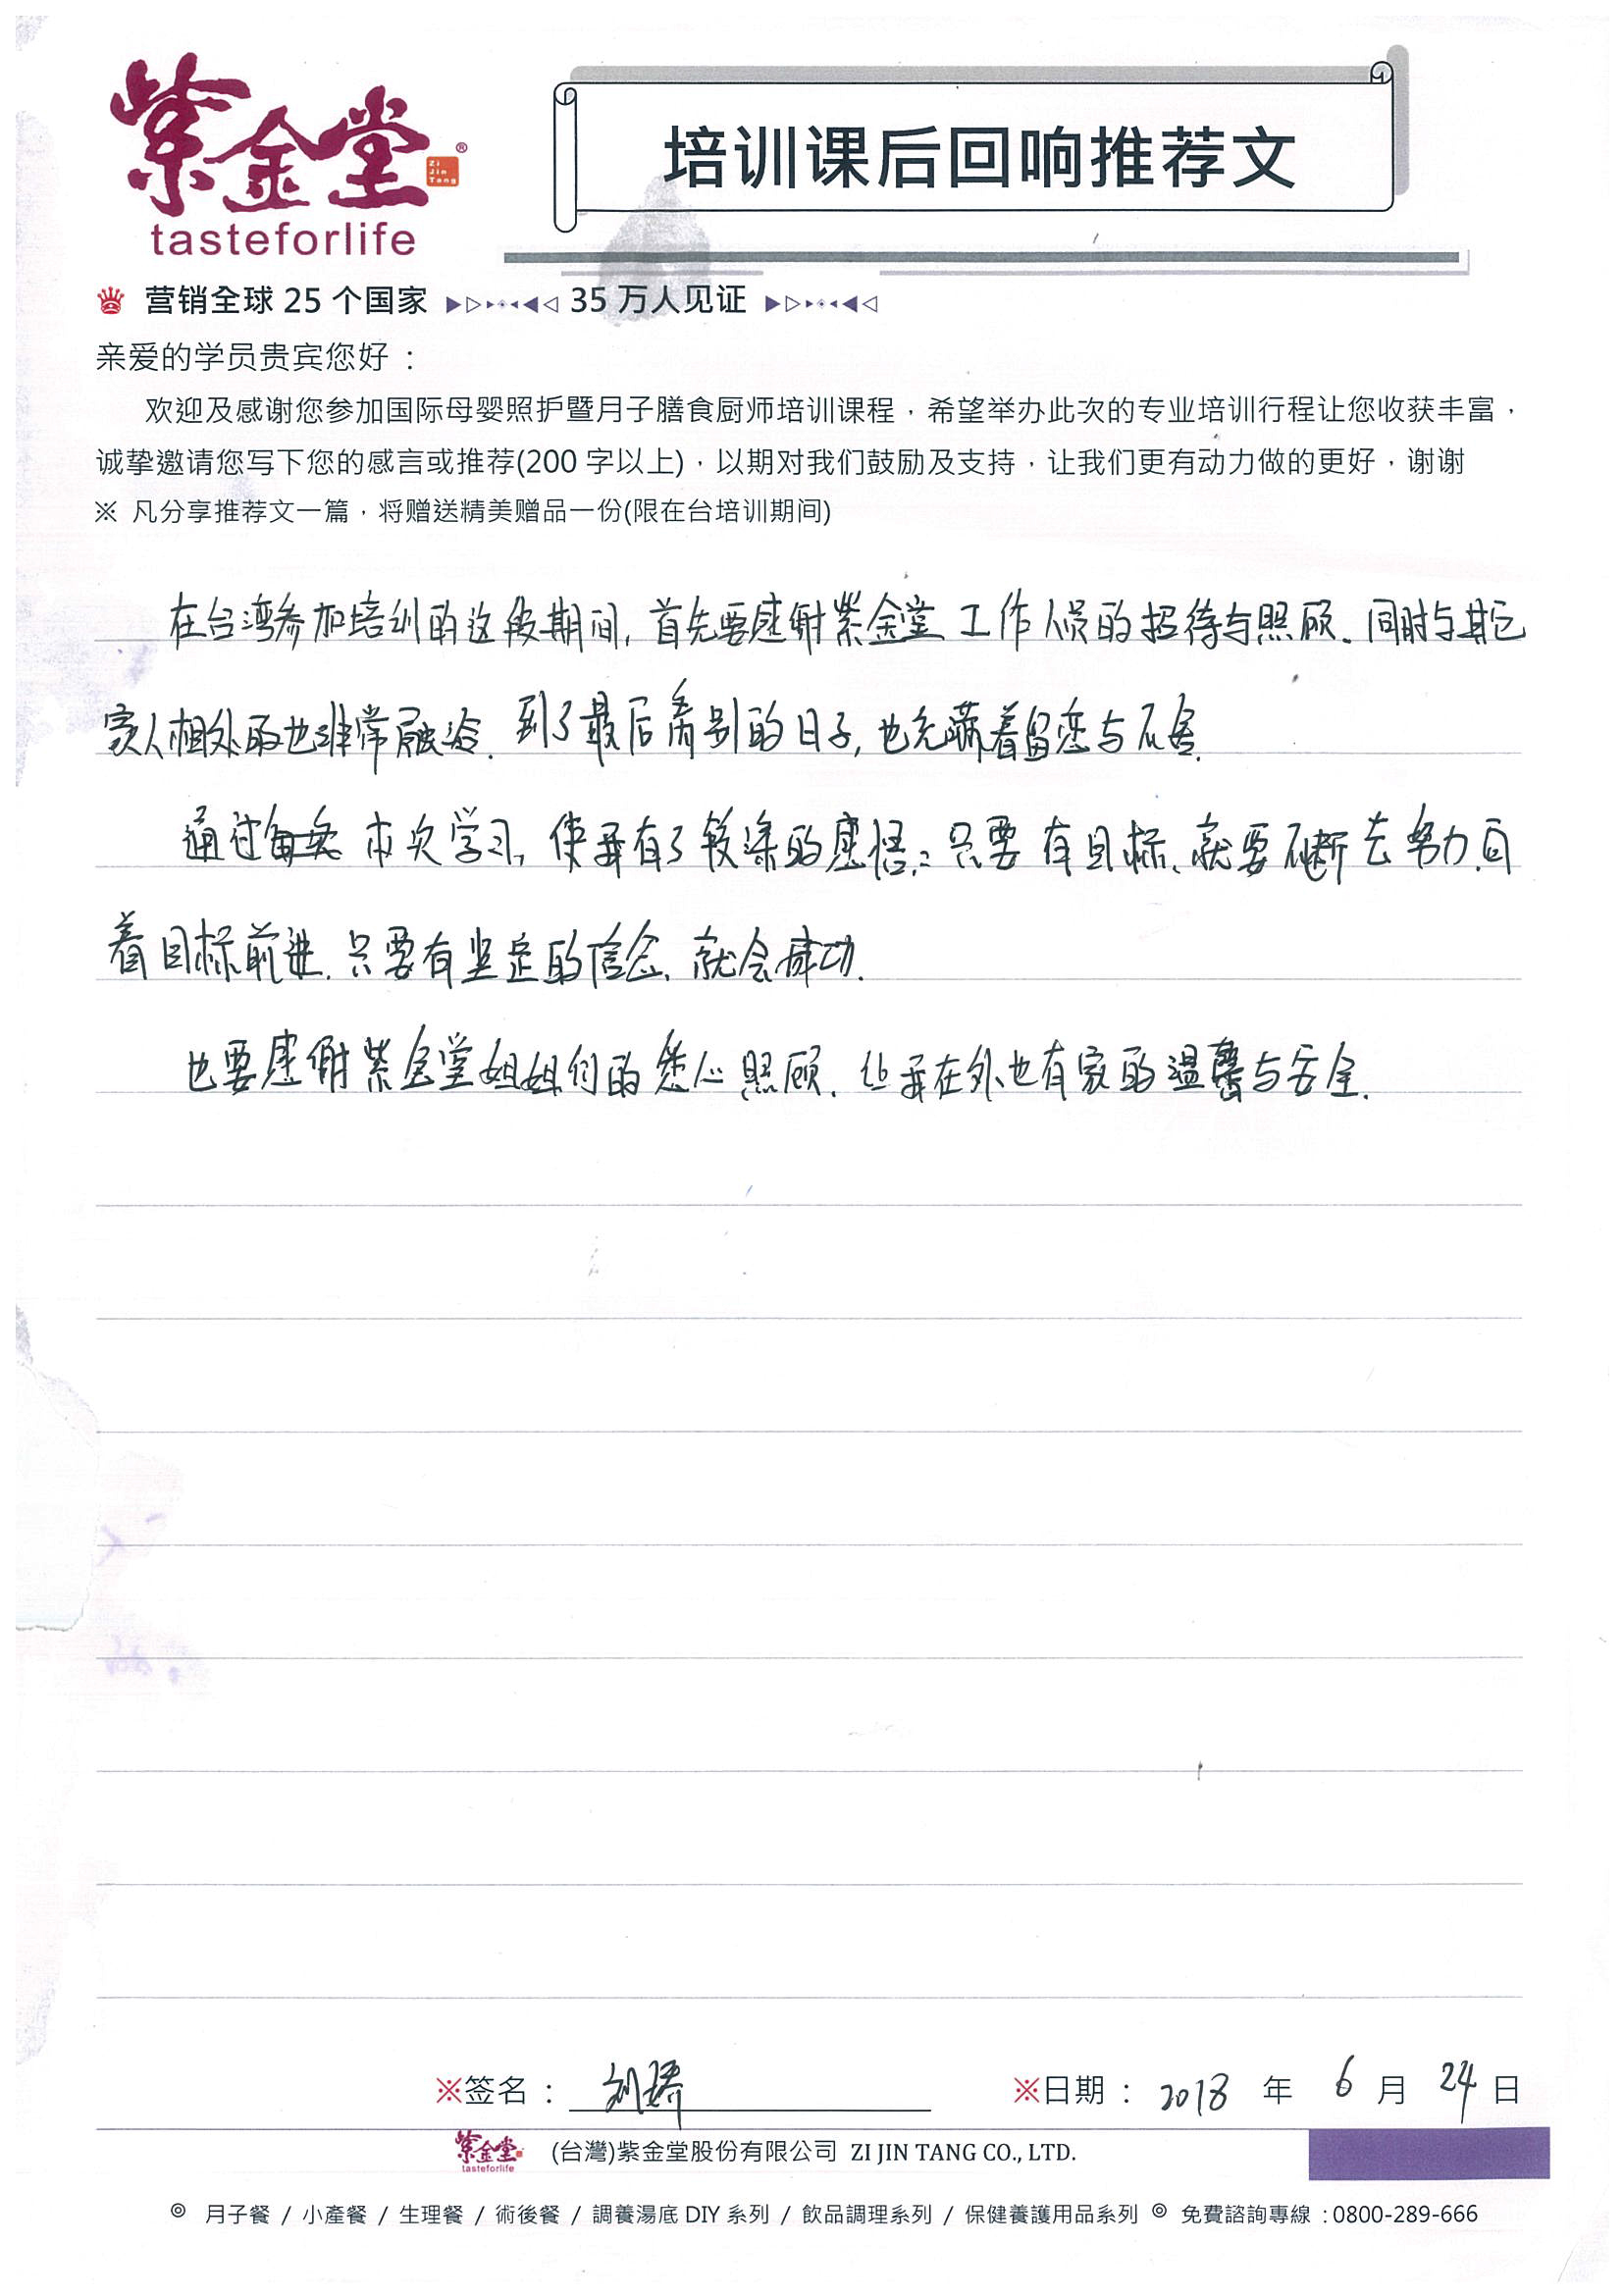 紫金堂®
Zi Jin Tang
tasteforlife
培训课后回响推荐文
营销全球 25 个国家 35 万人见证
亲爱的学员贵宾您好：
欢迎及感谢您参加国际母婴照护暨月子膳食厨师培训课程，希望举办此次的专业培训行程让您收获丰富，
诚挚邀请您写下您的感言或推荐(200 字以上)，以期对我们鼓励及支持，让我们更有动力做的更好，谢谢
※ 凡分享推荐文一篇，将赠送精美赠品一份(限在台培训期间)
在台湾参加培训的这段期间, 首先要感谢紫金堂工作人员的招待与照顾. 同时与其它
家人相处的也非常融洽. 到了最后离别的日子, 也充满着留恋与不舍.
通过 本次学习, 使我有了较深的感悟: 只要有目标, 就要不断去努力, 向
着目标前进. 只要有坚定的信念, 就会成功.
也要感谢紫金堂姐姐们的悉心照顾. 让我在外也有家的温馨与安全.
※签名： 刘娇
※日期： 2018 年 6 月 24 日
紫金堂 tasteforlife (台灣)紫金堂股份有限公司 ZI JIN TANG CO., LTD.
◎ 月子餐 / 小產餐 / 生理餐 / 術後餐 / 調養湯底 DIY 系列 / 飲品調理系列 / 保健養護用品系列 ◎ 免費諮詢專線：0800-289-666